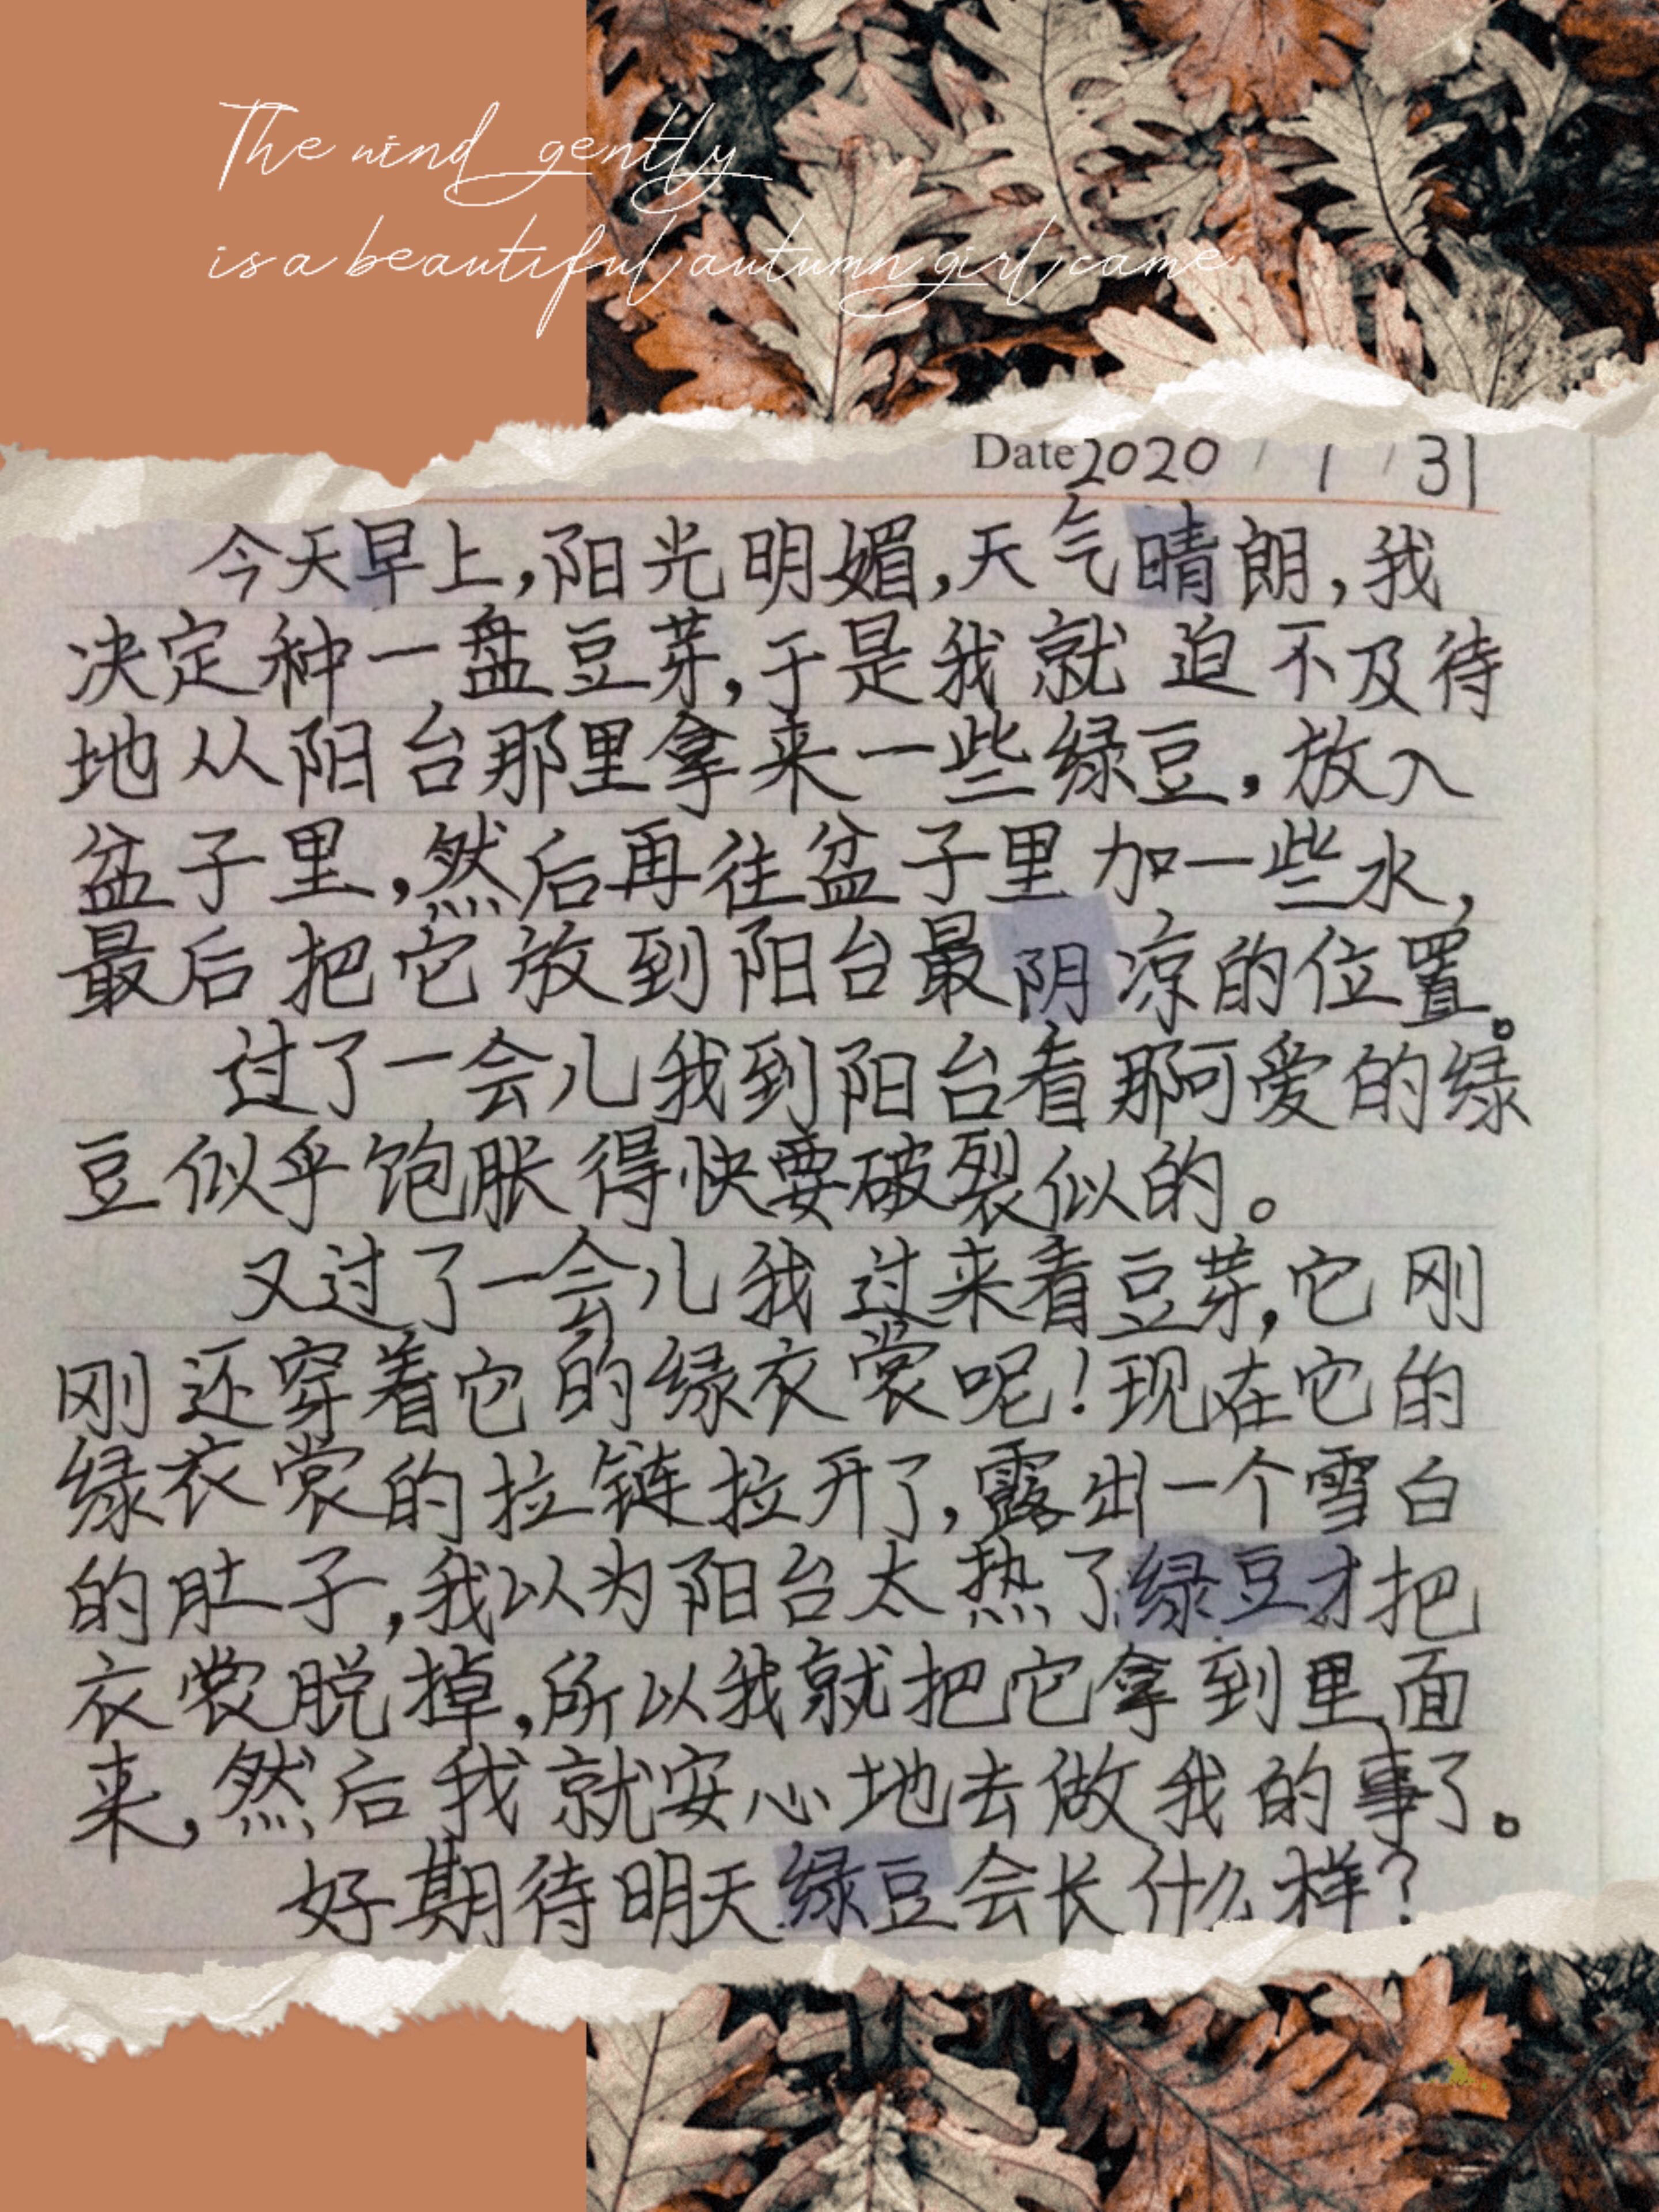 The wind gently
is a beautiful autumn girl came
Date 2020 / 1 / 31
今天早上,阳光明媚,天气晴朗,我
决定种一盘豆芽,于是我就迫不及待
地从阳台那里拿来一些绿豆,放入
盆子里,然后再往盆子里加一些水,
最后把它放到阳台最阴凉的位置。
过了一会儿我到阳台看那可爱的绿
豆似乎饱胀得快要破裂似的。
又过了一会儿我过来看豆芽,它刚
刚还穿着它的绿衣裳呢!现在它的
绿衣裳的拉链拉开了,露出一个雪白
的肚子,我以为阳台太热了绿豆才把
衣裳脱掉,所以我就把它拿到里面
来,然后我就安心地去做我的事了。
好期待明天绿豆会长什么样?